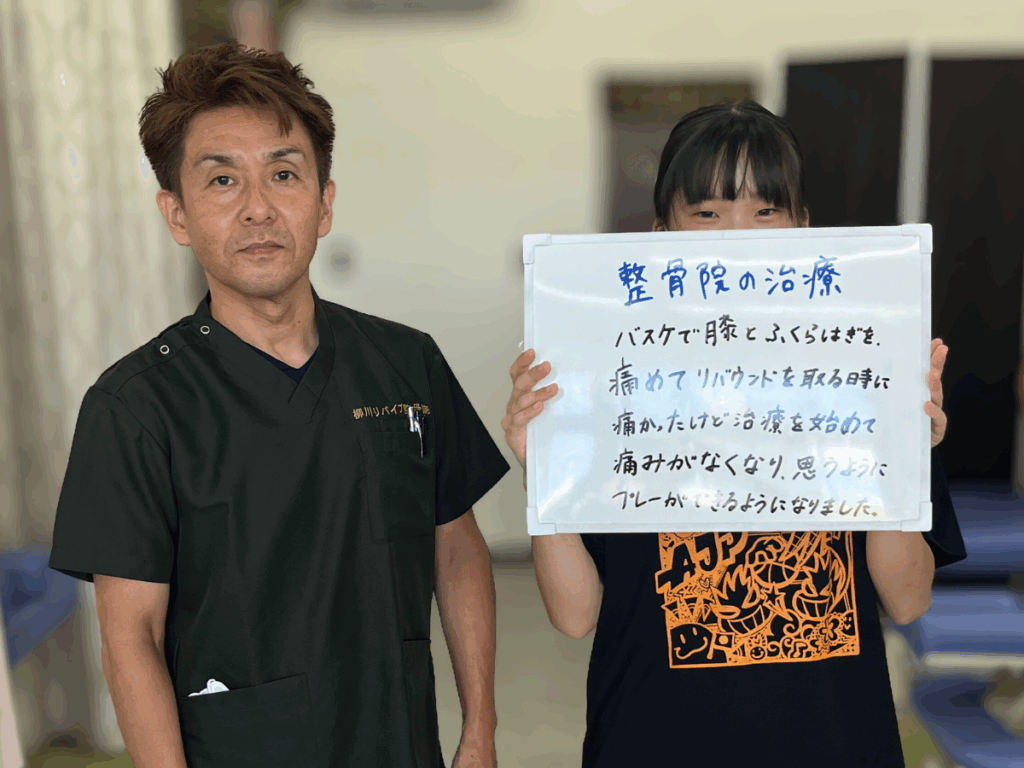 整骨院の治療
バスケで膝とふくらはぎを、
痛めてリバウンドを取る時に
痛かったけど治療を始めて
痛みがなくなり、思うように
プレーができるようになりました。
柳川リバイブ